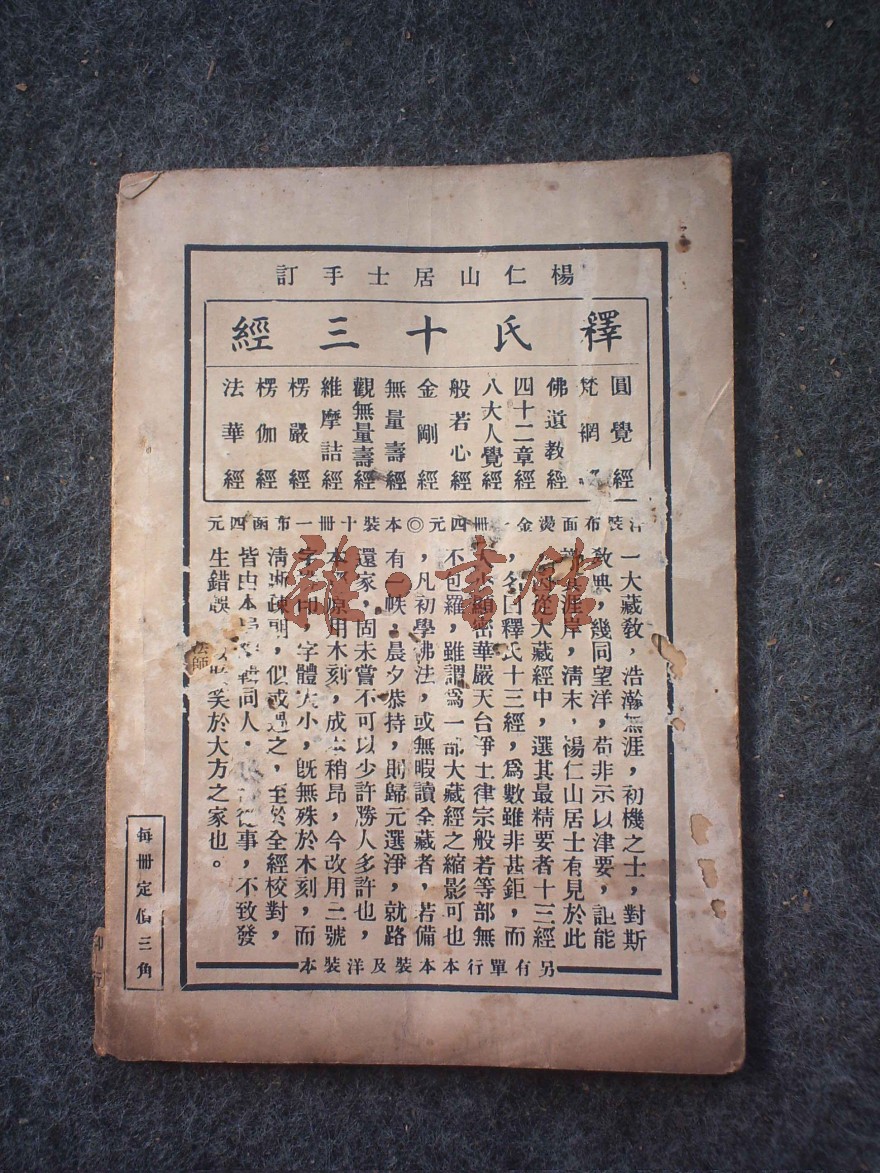 楊仁山居士手訂
釋氏十三經
圓覺經
梵網經
佛遺教經
四十二章經
八大人覺經
般若心經
金剛經
無量壽經
觀無量壽經
維摩詰經
楞嚴經
楞伽經
法華經
裝布面燙金一冊四元◎本裝十冊一布函四元
一大藏教，浩瀚無涯，初機之士，對斯
教典，幾同望洋，茍非示以津要，詎能
其涯岸，清末，楊仁山居士有見於此
從大藏經中，選其最精要者十三經
，名曰釋氏十三經，為數雖非甚鉅，而
大小顯密華嚴天台淨土律宗般若等部無
不包羅，雖謂爲一部大藏經之縮影可也
，凡初學佛法，或無暇讀全藏者，若備
有一帙，晨夕恭持，則歸元選淨，就路
還家，固未嘗不可以少許勝人多許也，
本原用木刻，成本稍昂，今改用二號
字印，字體大小，旣無殊於木刻，而
清晰疎朗，似或過之，至於全經校對，
皆由本同人，從事，不致發
生錯誤，笑於大方之家也。
另有單行本本裝及洋裝本
每冊定價三角
法師
印
雜·書館